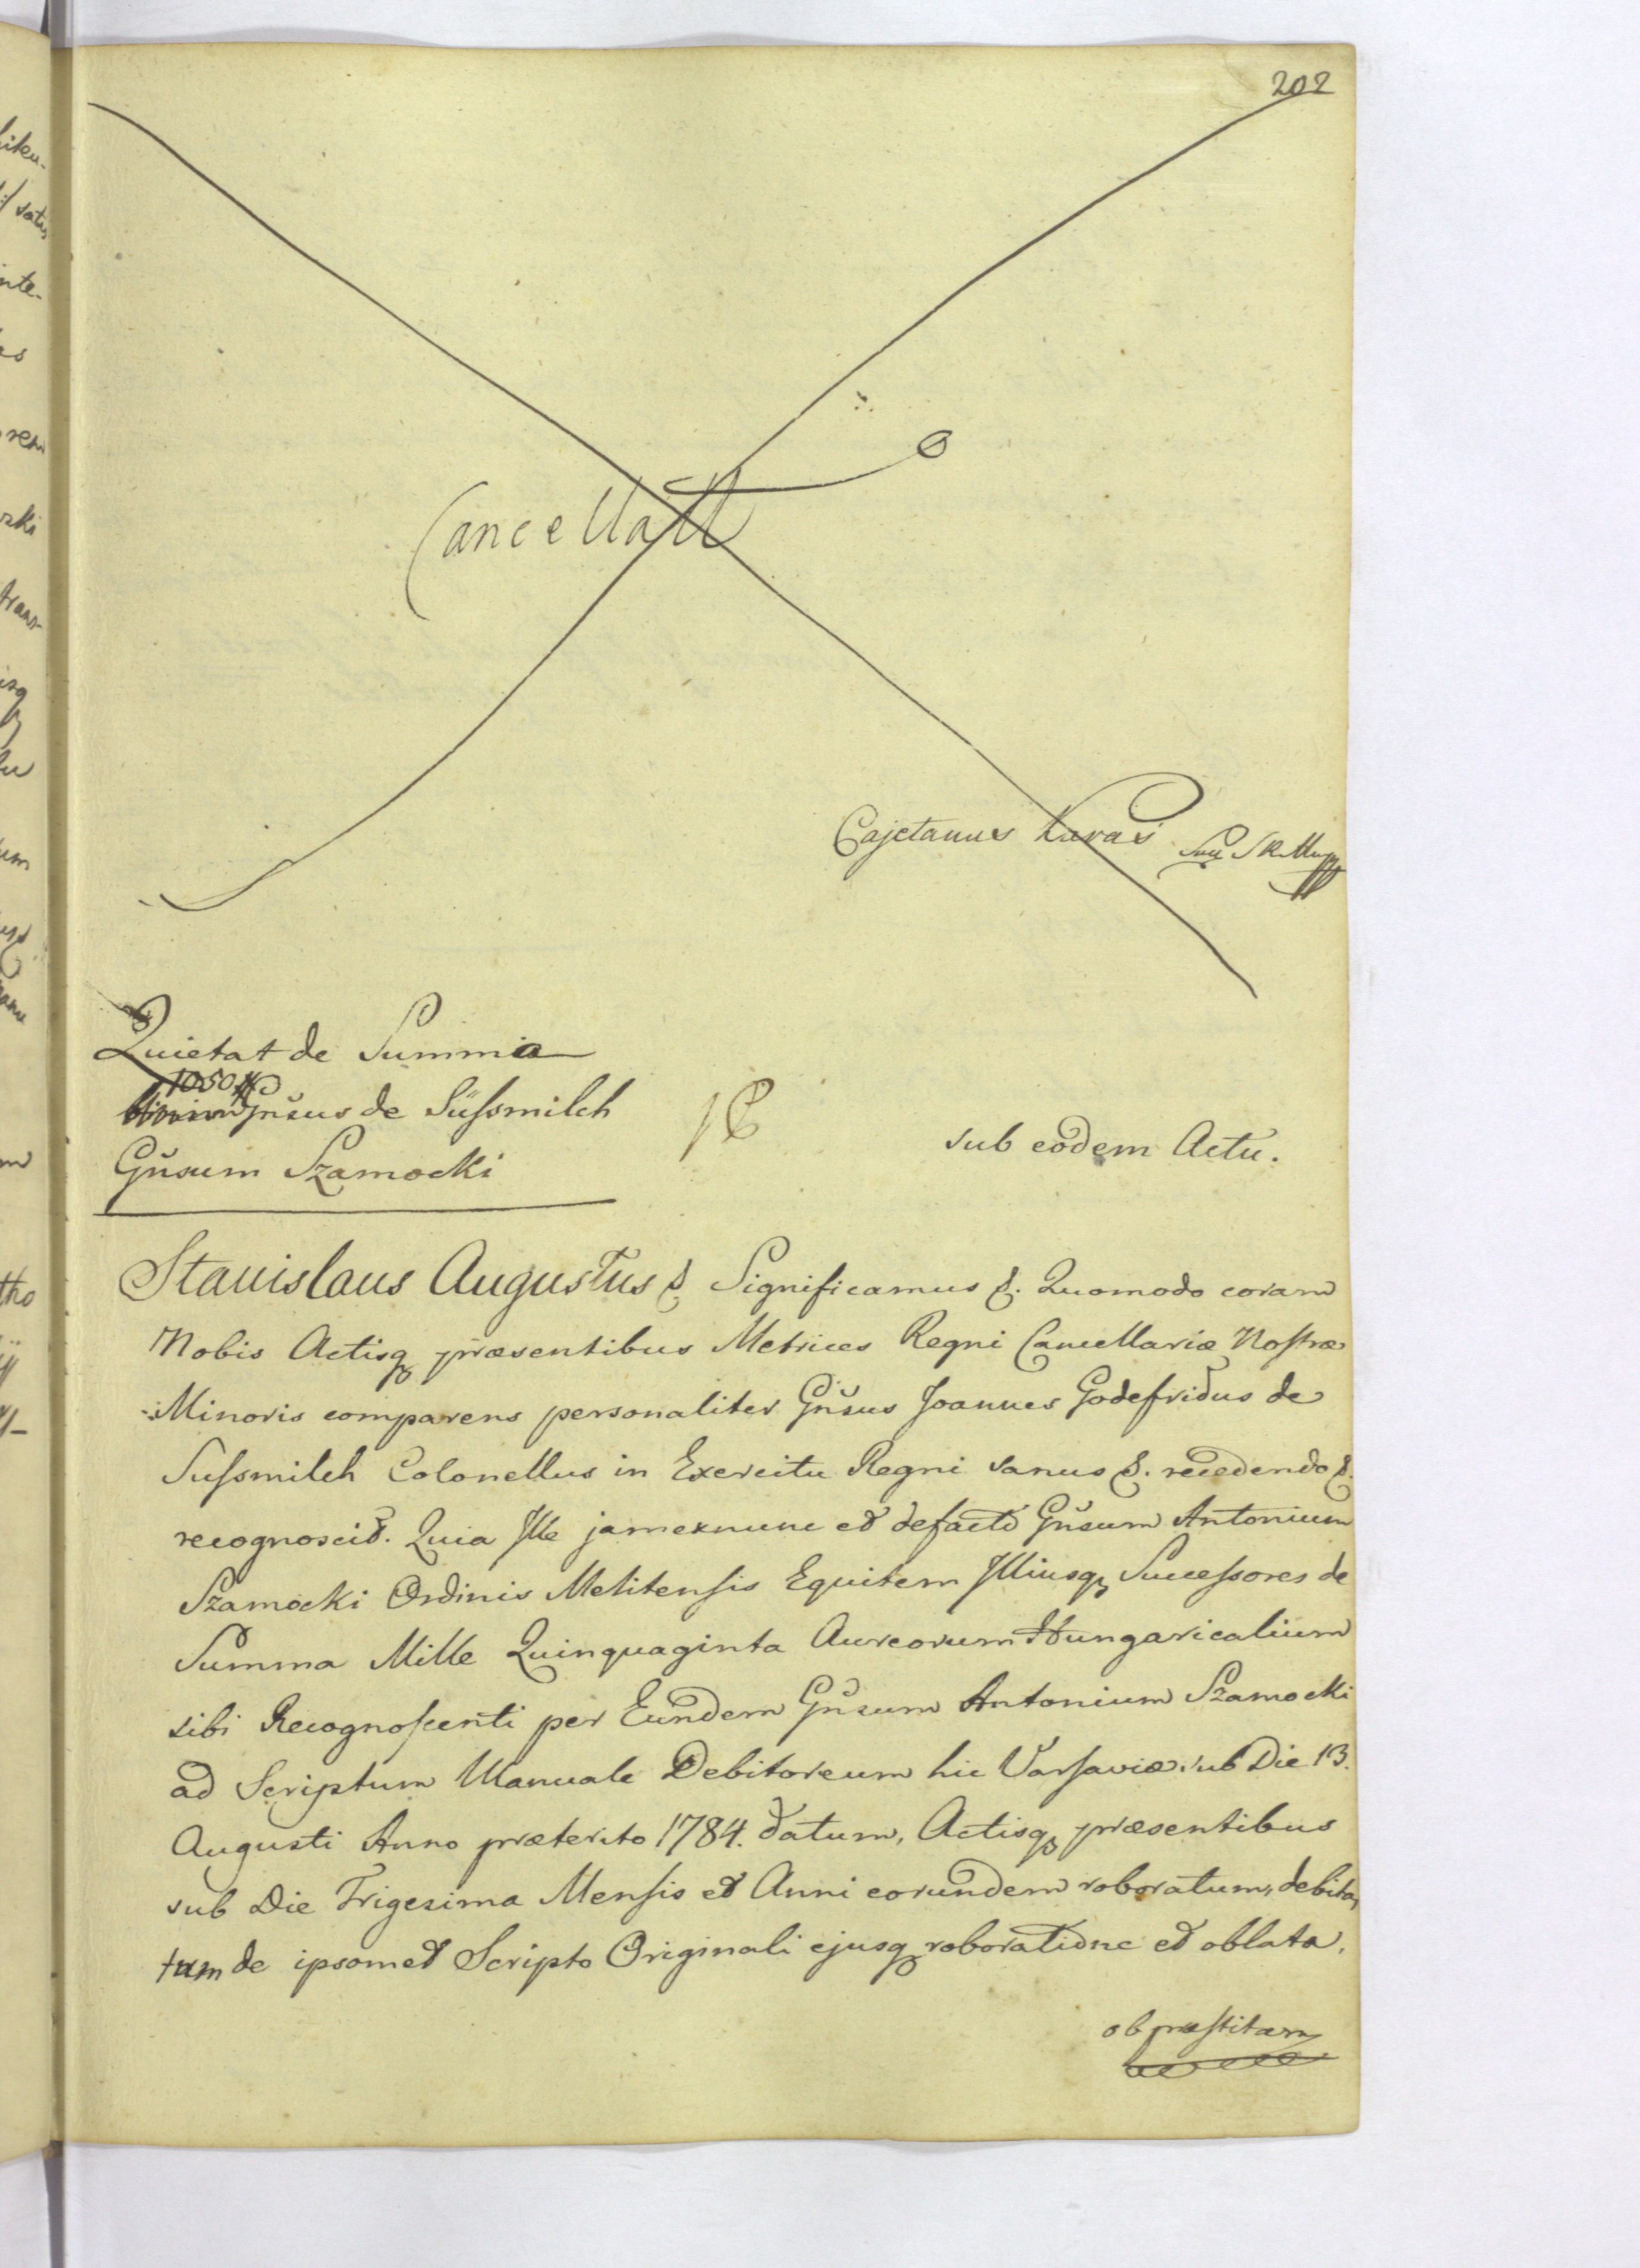 202
Cancellatt
Cajetanus Karas
Quietat de Summa
1050 #
Gñsus de Süssmilch
Gñsum Szamocki
sub eodem Actu.
Stanislaus Augustus &. Significamus &. Quomodo coram
Nobis Actisq₃ præsentibus Metrices Regni Cancellariæ Nostræ
Minoris comparens personaliter Gñsus Joannes Godefridus de
Sussmilch Colonellus in Exercitu Regni sanus &. recedendo &.
recognoscit. Quia Ille jamexnunc et defacto Gñsum Antonium
Szamocki Ordinis Melitensis Equitem Illiusq₃ Successores de
Summa Mille Quinquaginta Aureorum Hungaricalium
sibi Recognoscenti per Eundem Gñsum Antonium Szamocki
ad Scriptum Manuale Debitoreum hic Varsaviæ sub Die 13.
Augusti Anno præterito 1784. datum, Actisq₃ præsentibus
sub Die Trigesima Mensis et Anni eorundem roboratum, debita,
tum de ipsomet Scripto Originali ejusq₃ roboratione et oblata,
ob præstitam